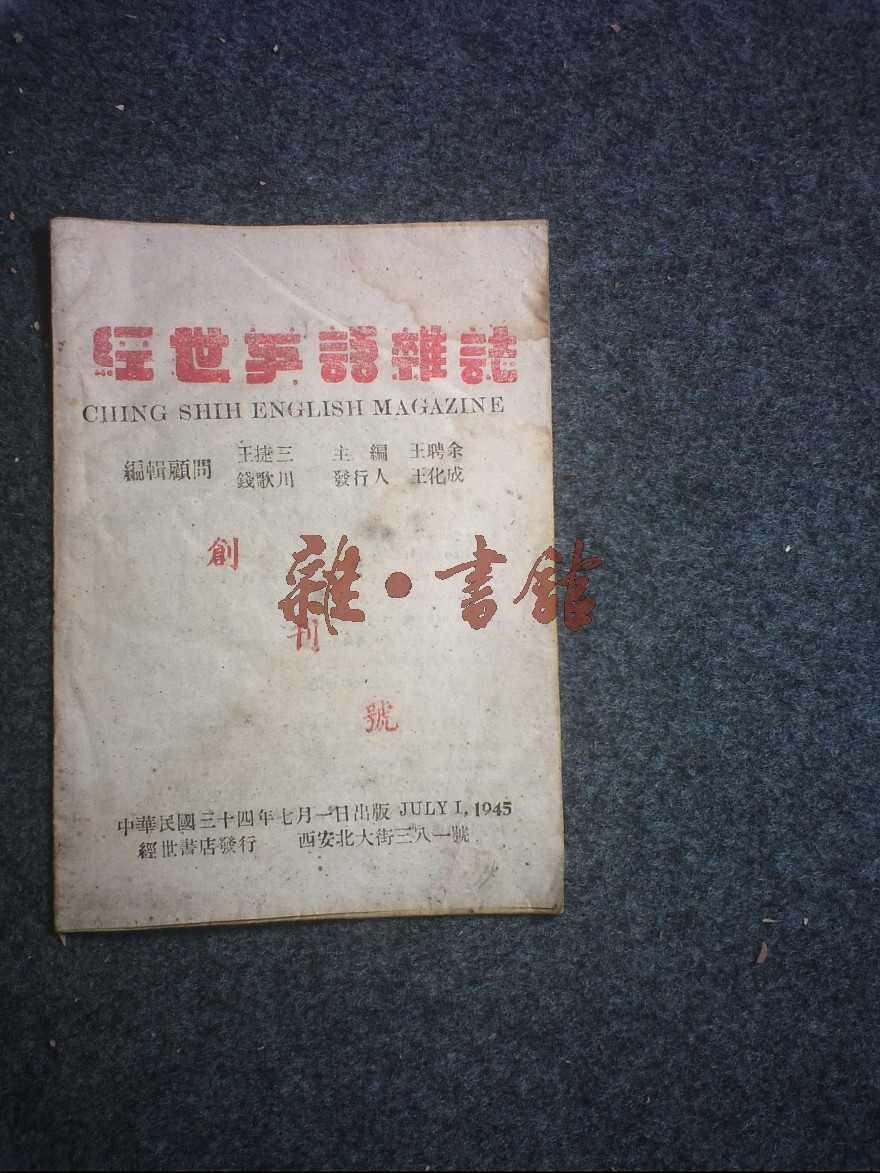 經世英語雜誌
CHING SHIH ENGLISH MAGAZINE
編輯顧問 王捷三 主編 王聘余
錢歌川 發行人 王化成
創
刊
號
雜•書館
中華民國三十四年七月一日出版 JULY 1, 1945
經世書店發行 西安北大街三八一號